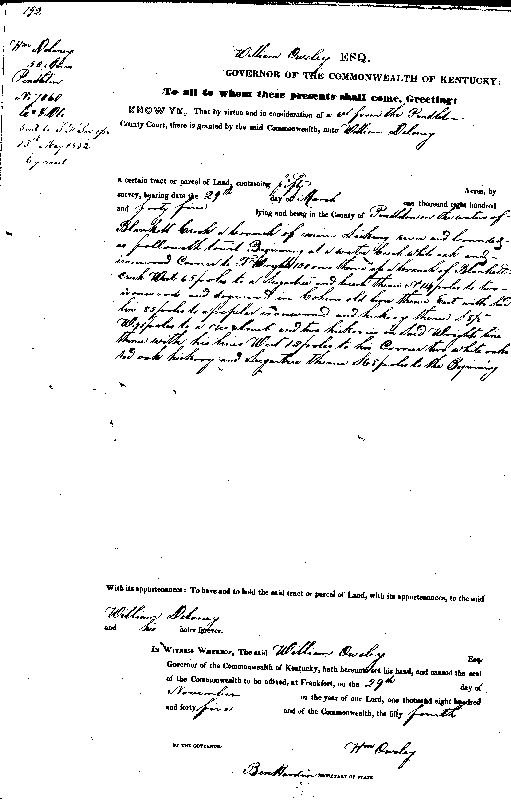 192
Wm Deloney
50 Acres
Pendleton
No 1060
Ex & Dld.
sent to
15th May 1852
by mail
William Owsley ESQ.
GOVERNOR OF THE COMMONWEALTH OF KENTUCKY:
To all to whom these presents shall come, Greeting:
KNOW YE, That by virtue and in consideration of a from the Pendleton
County Court, there is granted by the said Commonwealth, unto William Deloney
a certain tract or parcel of Land, containing fifty Acres, by
survey, bearing date the 29th day of March one thousand eight hundred
and forty five lying and being in the County of Pendleton on the waters of
Blanket Creek a branch of main Licking river and bounded
as followeth towit Beginning at a water Creek white oak and
ironwood Corner to Wright 100 acres thence up a branch of Blanket
Creek West 65 poles to a Sugartree and beech thence poles to two
ironwoods and dogwood in old line thence East with said
line 88 poles to a poplar ironwood and hickory thence S 5
W 98 poles to a and two hickories in said Wrights line
thence with his line West 12 poles to his Corner two white oaks
red oak hickory and Sugartree thence S 65 poles to the Beginning
With its appurtenances: To have and to hold the said tract or parcel of Land, with its appurtenances, to the said
William Deloney
and his heirs forever.
IN WITNESS WHEREOF, The said William Owsley Esq
Governor of the Commonwealth of Kentucky, hath hereunto set his hand, and caused the seal
of the Commonwealth to be affixed, at Frankfort, on the 29th day of
November in the year of our Lord, one thousand eight hundred
and forty five and of the Commonwealth, the fifty fourth
BY THE GOVERNOR Wm Owsley
Ben Hardin SECRETARY OF STATE